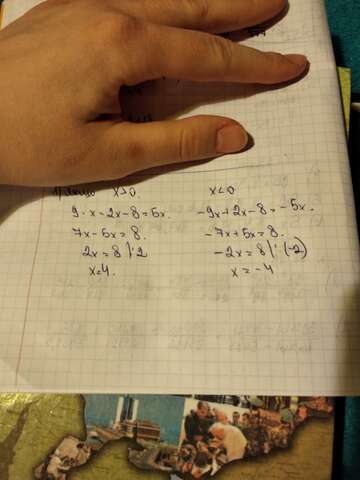 x>0 x<0
9·x-2x-8=5x. -9x+2x-8=-5x.
7x-5x=8. -7x+5x=8.
2x=8|:2 -2x=8|:(-2)
x=4. x=-4